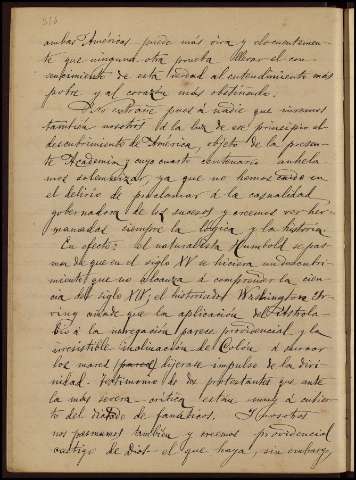 316
ambas Américas puede más viva y elocuentemen-
te que ninguna otra prueba llevar el con-
vencimiento de esta verdad al entendimiento más
pobre y al corazón más obstinado.
No extrañe pues á nadie que miremos
también nosotros á la luz de ese principio el
descubrimiento de América, objeto de la presen-
te Academia, y cuyo cuarto centenario anhela-
mos solemnizar, ya que no hemos caido en
el delirio de proclamar á la casualidad
gobernadora de los sucesos y creemos ver her-
manadas siempre la lógica y la historia.
En efecto: el naturalista Humbold se pas-
ma de que en el siglo XV se hiciera un descubri-
miento que no alcanza á comprender la cien-
cia del siglo XIX; el historiador Washington Ir-
ving añade que la aplicación del Astrola-
bio á la navegación parece providencial, y la
irresistible inclinación de Colón á surcar
los mares (parece) dijerase impulso de la divi-
nidad. Testimonio de dos protestantes que ante
la más severa crítica están muy á cubier-
to del dictado de fanáticos. Y nosotros
nos pasmamos también y creemos providencial
castigo de Dios el que haya, sin embargo,